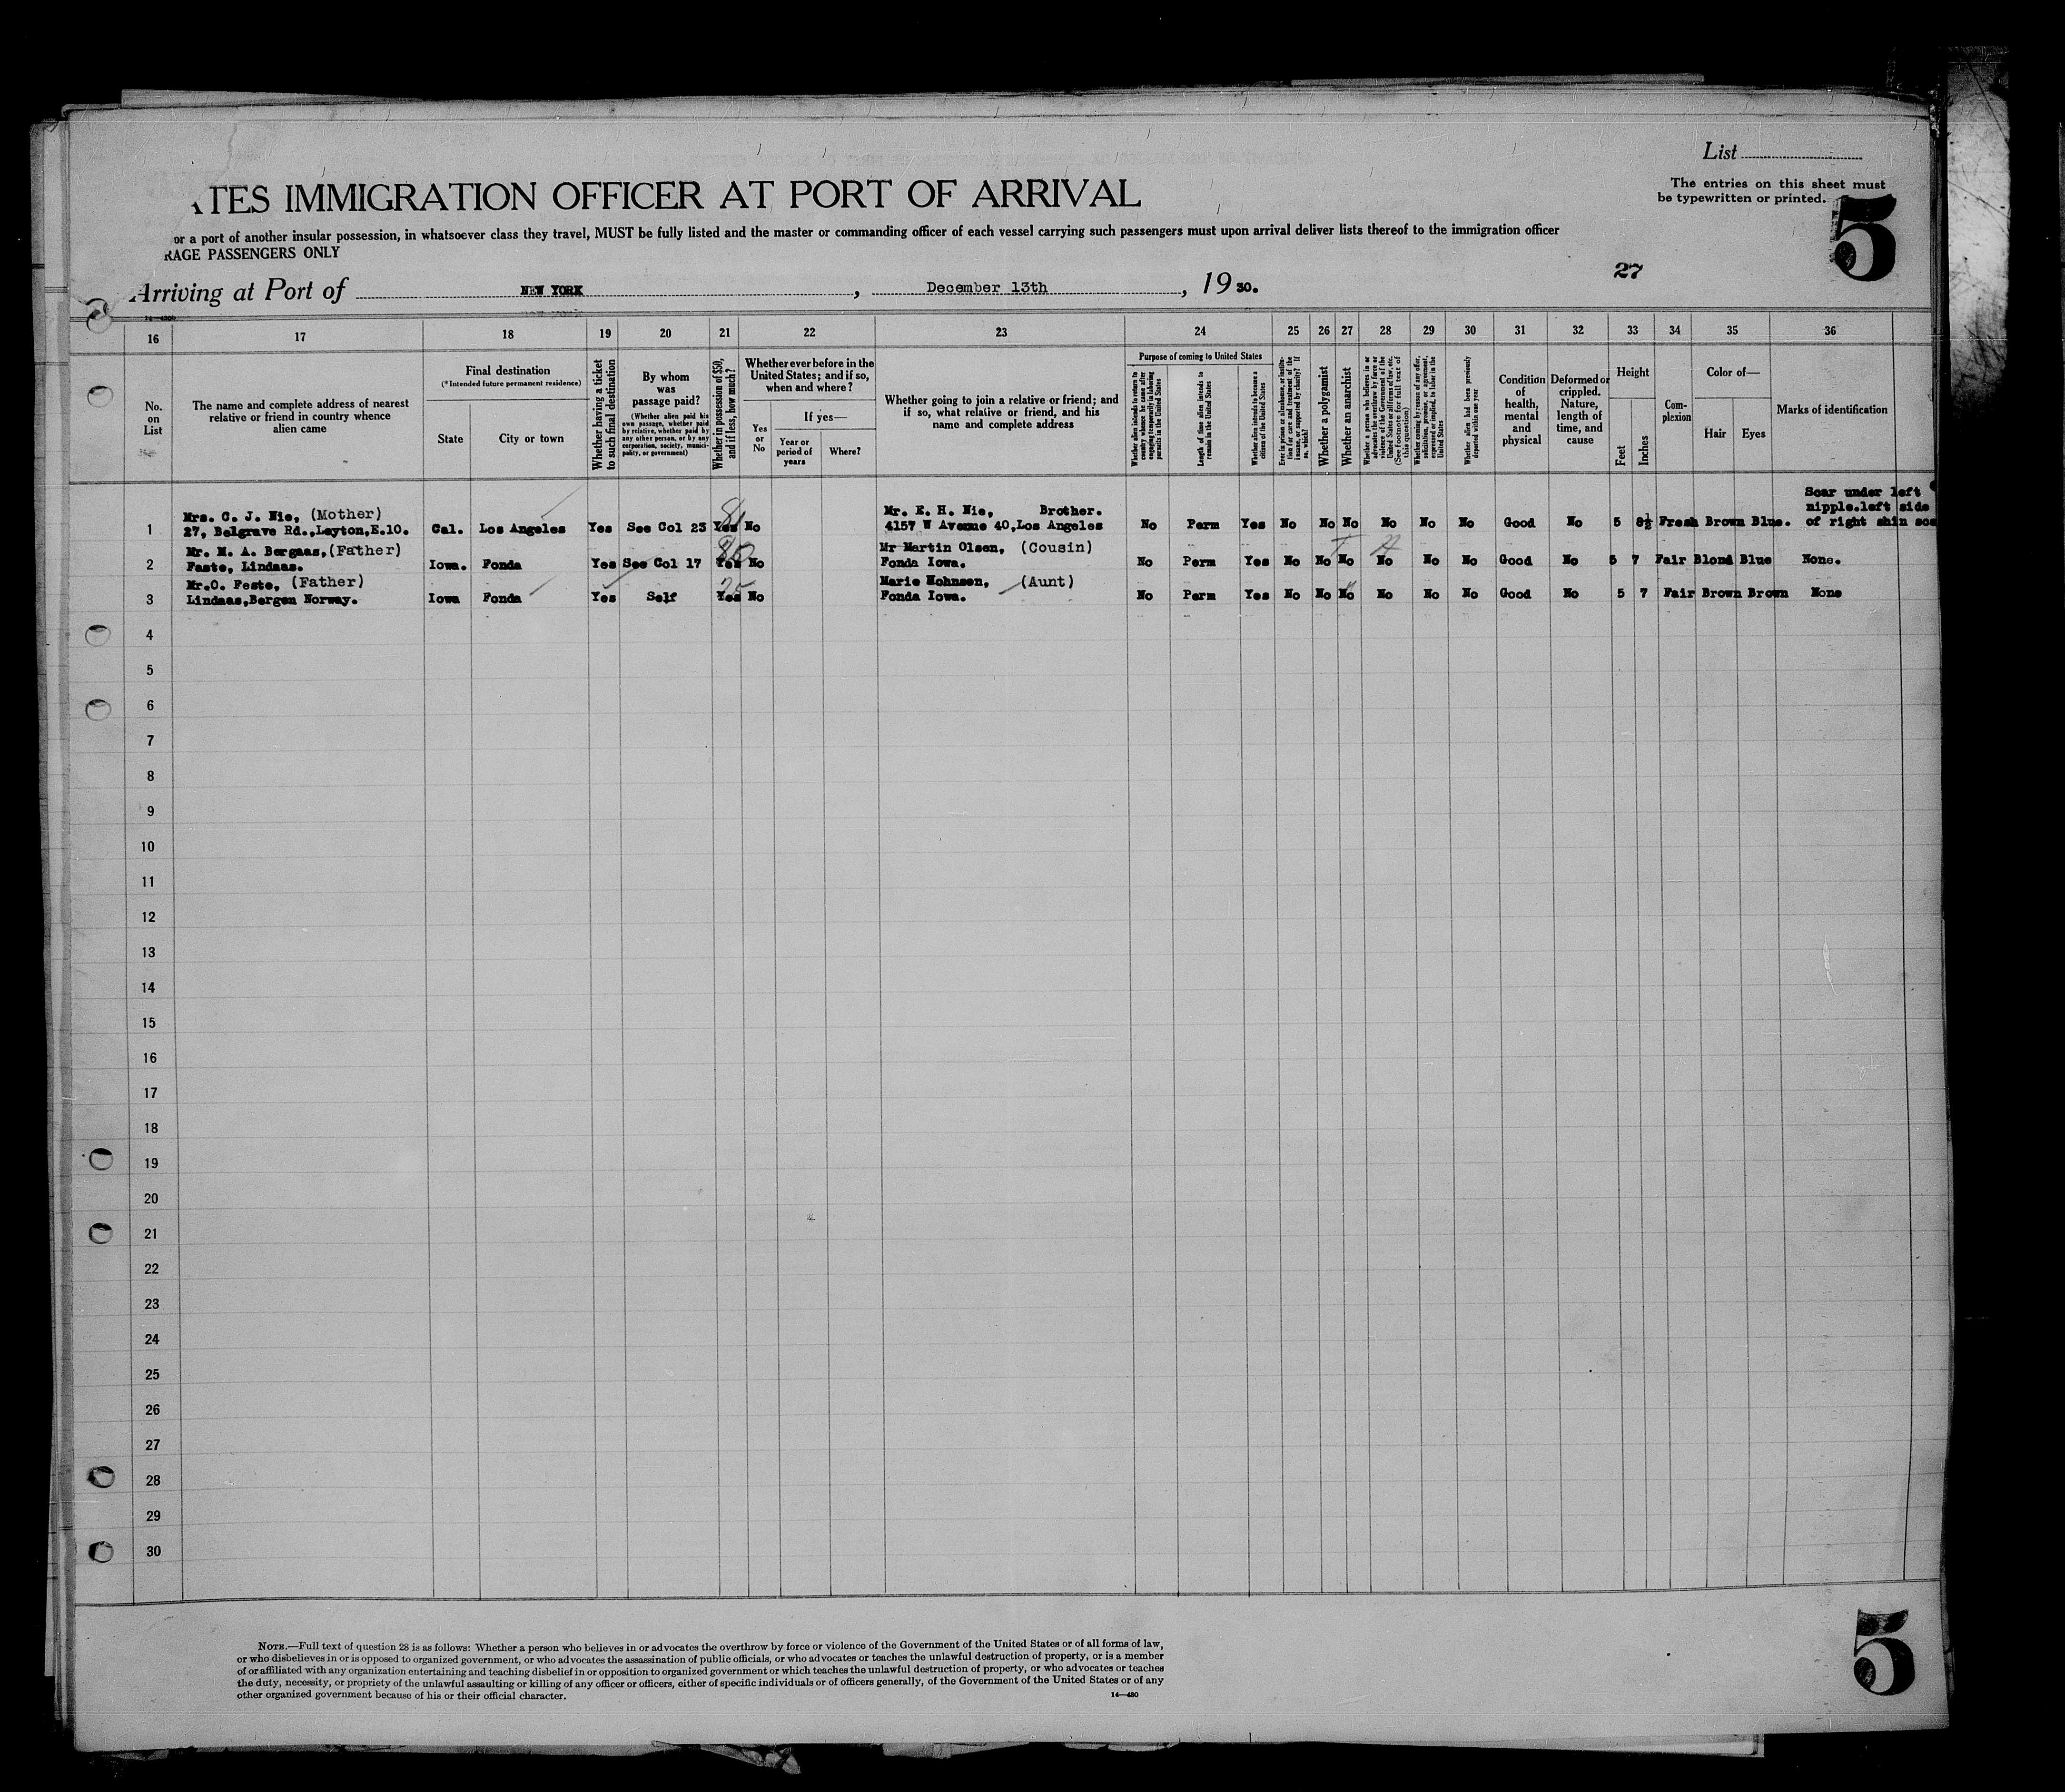 List
The entries on this sheet must
be typewritten or printed.
5
TES IMMIGRATION OFFICER AT PORT OF ARRIVAL
or a port of another insular possession, in whatsoever class they travel, MUST be fully listed and the master or commanding officer of each vessel carrying such passengers must upon arrival deliver lists thereof to the immigration officer
RAGE PASSENGERS ONLY
27
Arriving at Port of NEW YORK , December 13th , 19 30.
16 17 18 19 20 21 22 23 24 25 26 27 28 29 30 31 32 33 34 35 36
No. on List
The name and complete address of nearest relative or friend in country whence alien came
Final destination
(*Intended future permanent residence)
State
City or town
Whether having a ticket to such final destination
By whom was passage paid?
(Whether alien paid his own passage, whether paid by relative, whether paid by any other person, or by any corporation, society, municipality, or government)
Whether in possession of $50, and if less, how much?
Whether ever before in the United States; and if so, when and where?
Yes or No
If yes—
Year or period of years
Where?
Whether going to join a relative or friend; and if so, what relative or friend, and his name and complete address
Purpose of coming to United States
Whether alien intends to return to country whence he came after engaging temporarily in laboring pursuits in the United States
Length of time alien intends to remain in the United States
Whether alien intends to become a citizen of the United States
Ever in prison or almshouse, or institution for care and treatment of the insane, or supported by charity? If so, which?
Whether a polygamist
Whether an anarchist
Whether a person who believes in or advocates the overthrow by force or violence of the Government of the United States or all forms of law, etc. (See footnote for full text of this question)
Whether coming by reason of any offer, solicitation, promise, or agreement, expressed or implied, to labor in the United States
Whether alien had been previously deported within one year
Condition of health, mental and physical
Deformed or crippled. Nature, length of time, and cause
Height
Feet
Inches
Com-plexion
Color of—
Hair
Eyes
Marks of identification
Mrs. C. J. Nie, (Mother) Mr. E. H. Nie, Brother. Scar under left nipple.left side
1 27, Belgrave Rd.,Leyton,E.10. Cal. Los Angeles Yes See Col 23 Yes No 4157 W Avenue 40,Los Angeles No Perm Yes No No No No No No Good No 5 8½ Fresh Brown Blue. of right shin
Mr. M. A. Bergaas,(Father) Mr Martin Olsen, (Cousin)
2 Faste, Lindaas. Iowa. Fonda Yes See Col 17 Yes No Fonda Iowa. No Perm Yes No No No No No No Good No 5 7 Fair Blond Blue None.
Mr.O. Feste, (Father) Marie Hohnsen, (Aunt)
3 Lindaas,Bergen Norway. Iowa Fonda Yes Self Yes No Fonda Iowa. No Perm Yes No No No No No No Good No 5 7 Fair Brown Brown None
4
5
6
7
8
9
10
11
12
13
14
15
16
17
18
19
20
21
22
23
24
25
26
27
28
29
30
NOTE.—Full text of question 28 is as follows: Whether a person who believes in or advocates the overthrow by force or violence of the Government of the United States or of all forms of law,
or who disbelieves in or is opposed to organized government, or who advocates the assassination of public officials, or who advocates or teaches the unlawful destruction of property, or is a member
of or affiliated with any organization entertaining and teaching disbelief in or opposition to organized government or which teaches the unlawful destruction of property, or who advocates or teaches
the duty, necessity, or propriety of the unlawful assaulting or killing of any officer or officers, either of specific individuals or of officers generally, of the Government of the United States or of any
other organized government because of his or their official character.
14—480
5